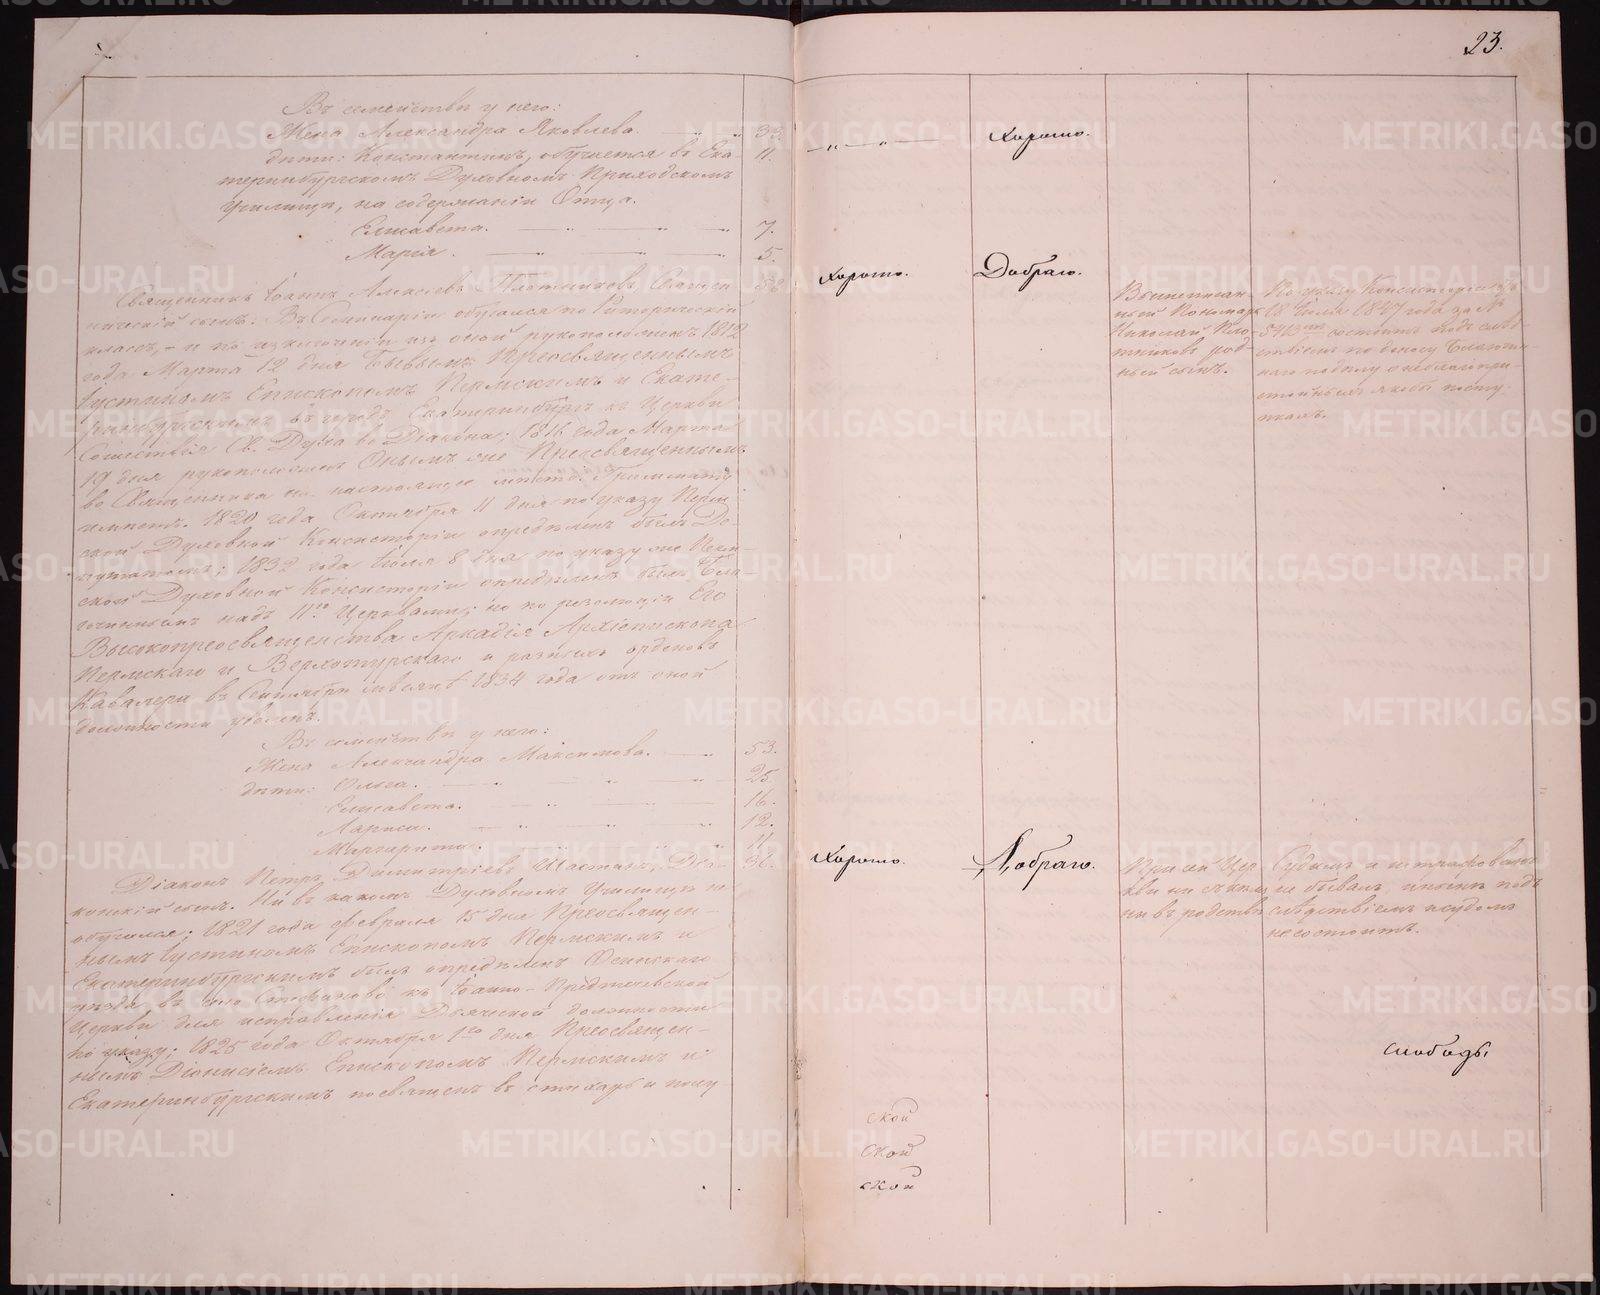 23.
Въ семействѣ у него:
Жена Александра Яковлева. 33.
дѣти: Константинъ, обучается въ Ека- 11.
теринбургскомъ Духовномъ Приходскомъ
Училищѣ, на содержаніи Отца.
Елисавета. 7.
Марія. 5.
Священникъ Іоаннъ Плотниковъ, Священ-
ническій сынъ. Въ Семинаріи обучался по Риторическій
классъ, и по изключеніи изъ оной рукоположенъ 1812
года Марта 12 дня бывымъ Преосвященнымъ
Іустиномъ Епископомъ Пермскимъ и Екате-
ринбургскимъ въ городъ Екатеринбургъ къ Церкви
Сошествія Св. Духа во Діакона; 1816 года Марта
19 дня рукоположенъ Онымъ же Преосвященнымъ
во Священника на настоящее мѣсто. Грамматъ
имѣетъ. 1820 года Октября 11 дня по указу Перм-
ской Духовной Консисторіи опредѣленъ былъ Де-
путатомъ; 1832 года Іюля 8 дня по указу же Перм-
ской Духовной Консисторіи опредѣленъ былъ Бла-
гочиннымъ надъ 11ю Церквами; но по резолюціи Его
Высокопреосвященства Аркадія Архіепископа
Пермскаго и Верхотурскаго и разныхъ орденовъ
Кавалера въ Сентябрѣ мѣсяцѣ 1834 года отъ оной
должности уволенъ.
Въ семействѣ у него:
Жена Александра Максимова. 53.
дѣти: Ольга. 25.
Елисавета. 16.
Лариса. 12.
Маргарита. 11.
Діаконъ Петръ Димитріевъ Діа-
конскій сынъ. Ни въ какомъ Духовномъ Училищѣ не
обучался; 1821 года Февраля 15 дня Преосвящен-
нымъ Іустиномъ Епископомъ Пермскимъ и
Екатеринбургскимъ былъ опредѣленъ Осинскаго
уѣзда въ село къ Іоанно-Предтечевской
Церкви для исправленія Дьяческой должности
по указу; 1825 года Октября 1го дня Преосвящен-
нымъ Діонисіемъ Епископомъ Пермскимъ и
Екатеринбургскимъ посвященъ въ стихарь и
Хорошо.
Хорошо. Добраго.
Вышеписан-
ный Пономарь
Николай Пло-
тниковъ род-
ный сынъ.
По указу Консисторіи отъ
18 Іюля 1847 года за №
5413мъ состоитъ подъ слѣд-
ствіемъ по доносу Благочин-
наго
стойныхъ якобы посту-
пкахъ.
Хорошо. Добраго.
При сей Цер-
кви ни съ кѣмъ
ни въ родствѣ
Судимъ и штрафованъ
не бывалъ, и нынѣ подъ
слѣдствіемъ и судомъ
не состоитъ.
слободы
ской
ской
ской
METRIKI.GASO-URAL.RU